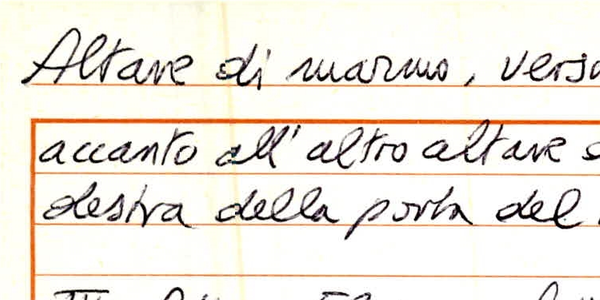 Altare di marmo, verso
accanto all'altro altare
destra della porta del